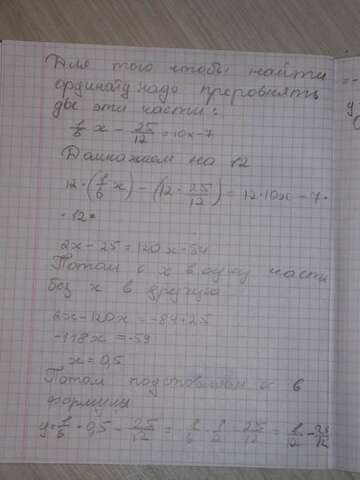 Для того чтобы найти
ординату надо преровнять
две эти части:
1/6 x - 25/12 = 10x-7
Домножаем на 12
12·(1/6 x) - (12·25/12) = 12·10x - 7·
·12
2x-25=120x-84
Потом с x в одну часть
без x в другую
2x-120x=-84+25
-118x=-59
x=0,5
Потом подставляем в
формулы
y=1/6·0,5-25/12=1/6·1/2-25/12=1/12-25/12
y